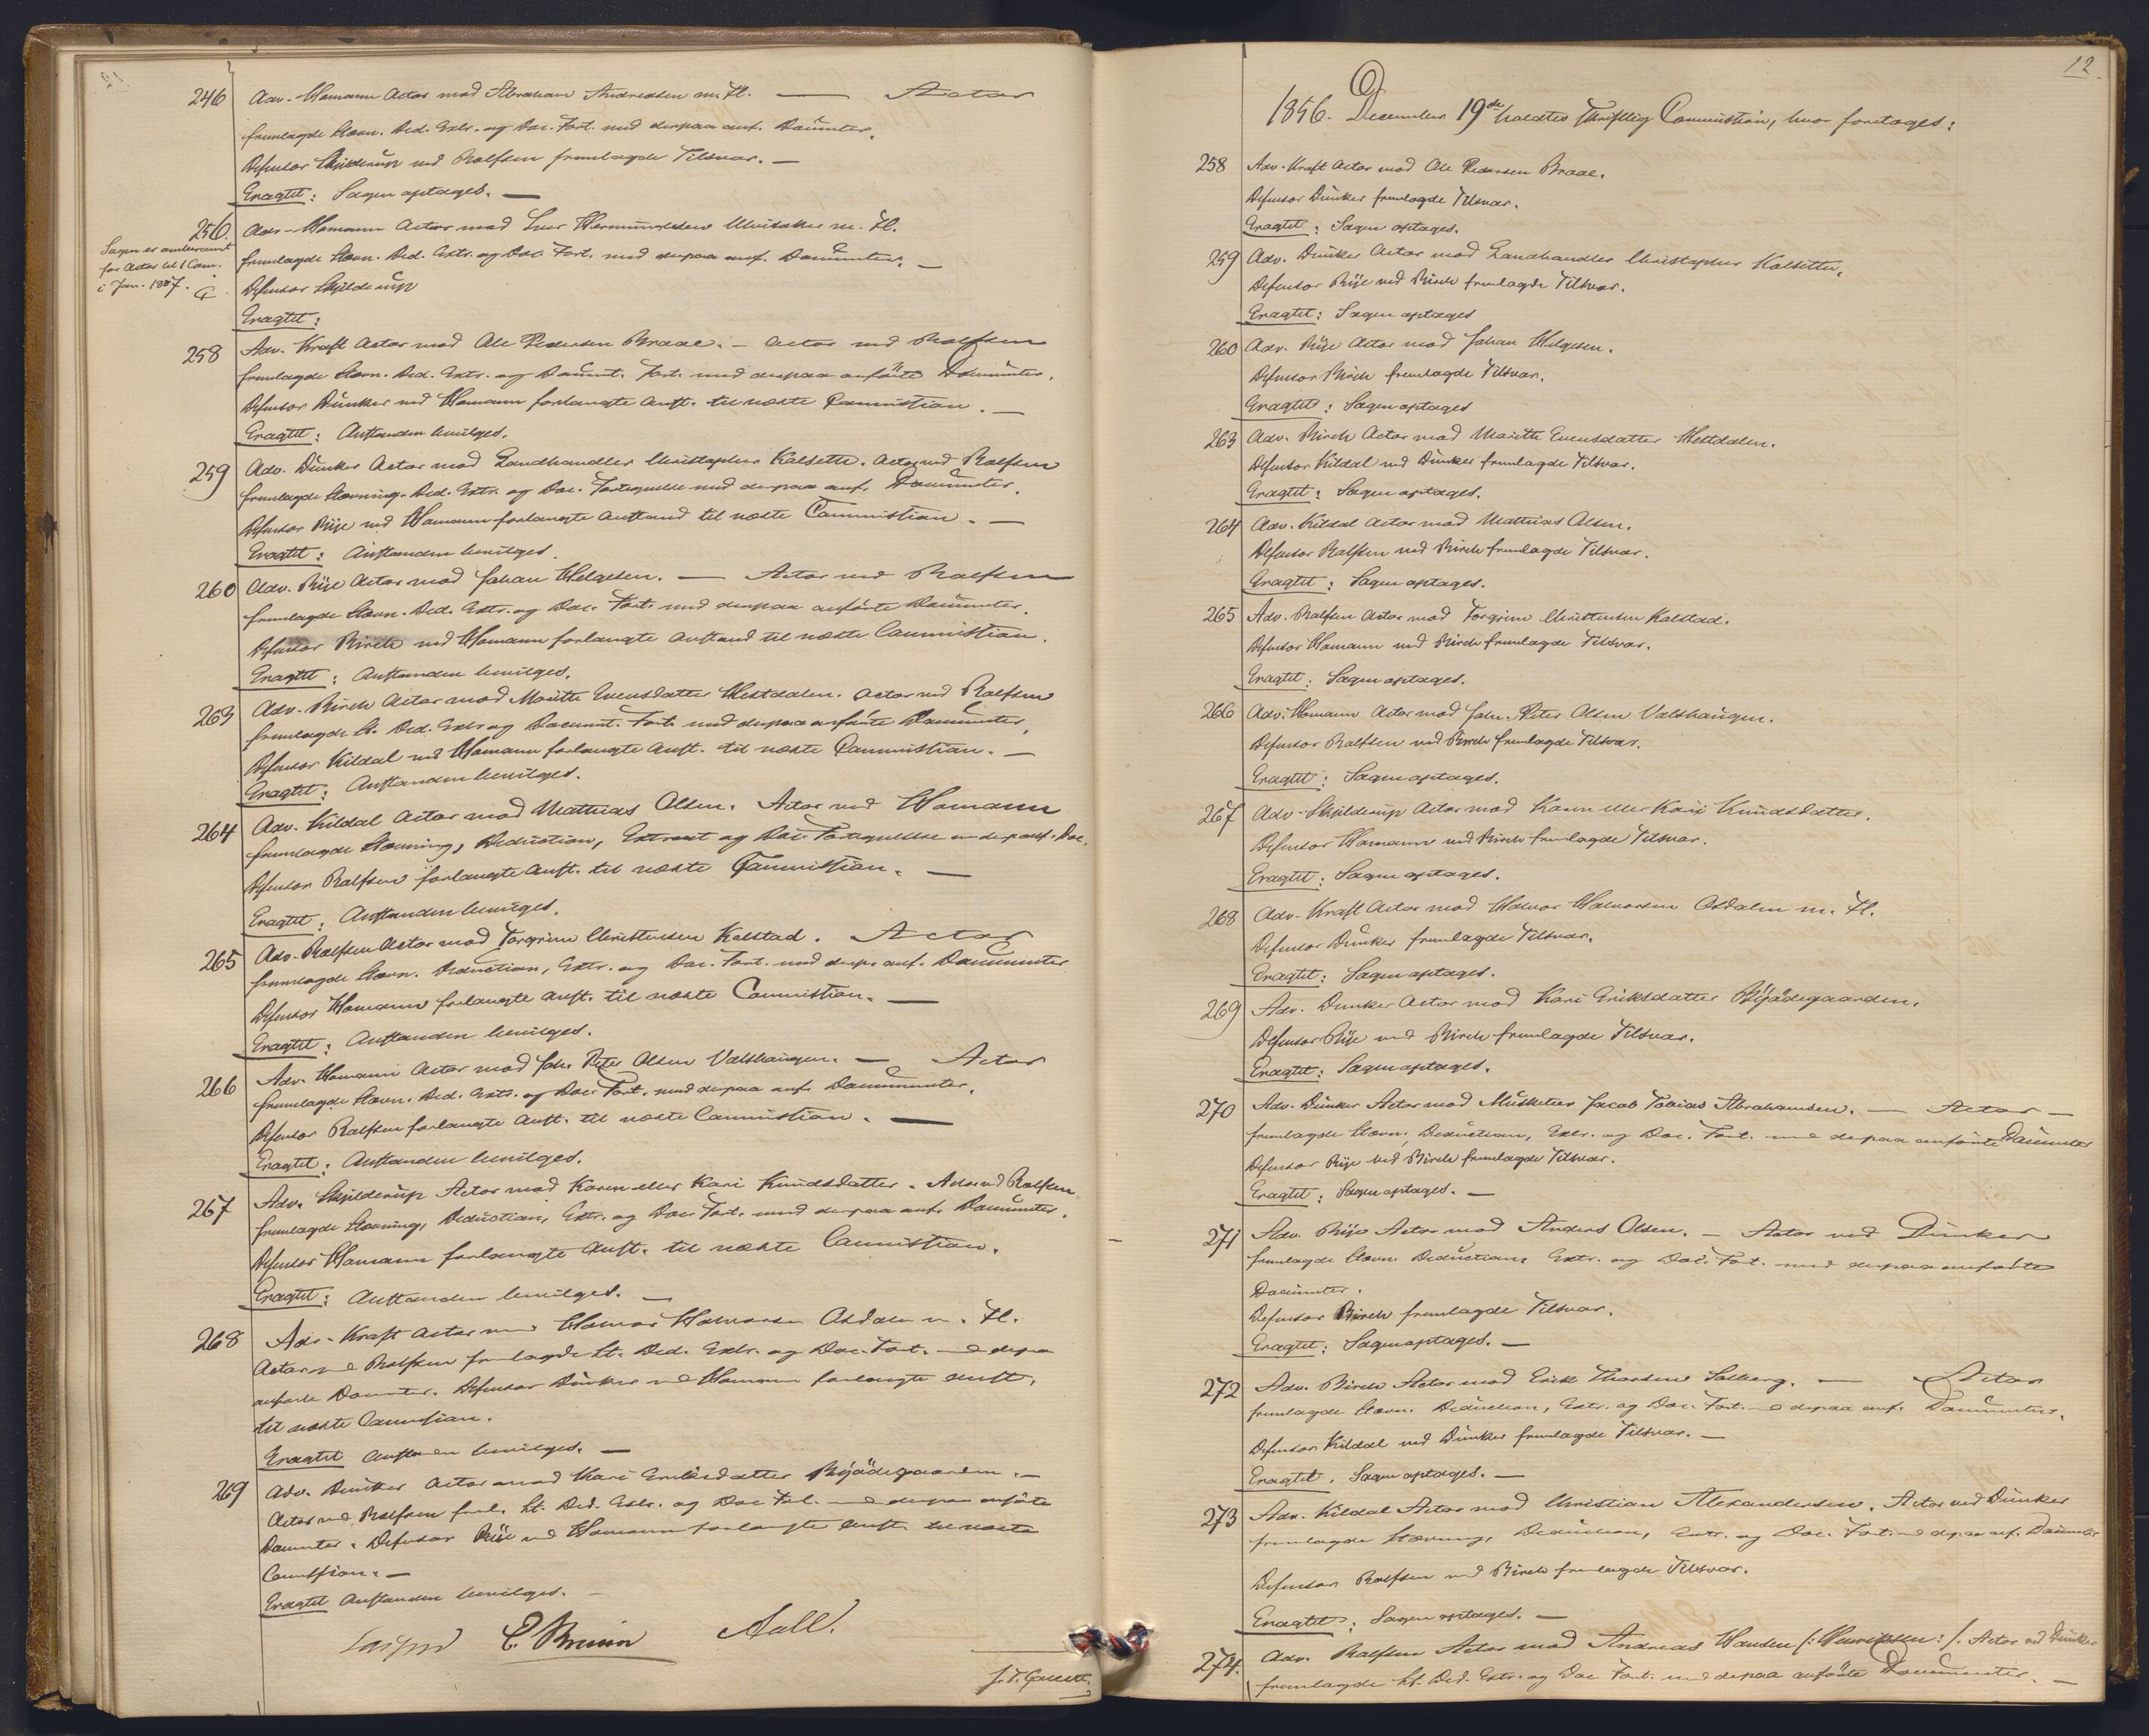 246 Adv. Homann Actor mod Abraham Andreasen m. Fl. — Actor
fremlagde Stevn. Ded. Extr. og Doc. Fort. med derpaa anf. Documenter.
Defensor Skjelderup ved Rolfsen fremlagde Tilsvar. —
Eragtet: Sagen optages. —
256. Adv. Homann Actor mod Iver Hermundsen Ulvisaker m. Fl.
Sagen er
for Actor til 1 Com.
i Jan. 1857.
fremlagde Stevn. Ded. Extr. og Doc. Fort. med derpaa anf. Documenter. —
Defensor Skjelderup
Eragtet:
258 Adv. Kraft Actor mod Ole Pedersen Braae. — Actor ved Rolfsen
fremlagde Stevn. Ded. Extr. og Document. Fort. med derpaa anførte Documenter.
Defensor Dunker ved Homann forlangte Anst. til næste Commission. —
Eragtet: Anstanden bevilges.
259 Adv. Dunker Actor mod Landhandler Christopher Kalseth. Actor ved Rolfsen
fremlagde Stevning. Ded. Extr. og Doc. Fortegnelse med derpaa anf. Documenter.
Defensor Rije ved Homann forlangte Anstand til næste Commission. —
Eragtet: Anstanden bevilges.
260 Adv. Rije Actor mod Johan Helgesen. — Actor ved Rolfsen
fremlagde Stevn. Ded. Extr. og Doc. Fort. med derpaa anførte Documenter.
Defensor Birch ved Homann forlangte Anstand til næste Commission.
Eragtet: Anstanden bevilges.
263 Adv. Birch Actor mod Marithe Evensdatter Hestdalen. Actor ved Rolfsen
fremlagde St. Ded. Extr. og Document. Fort. med derpaa anførte Documenter.
Defensor Kildal ved Homann forlangte Anst. til næste Commission. —
Eragtet: Anstanden bevilges.
264 Adv. Kildal Actor mod Mathias Olsen. Actor ved Homann
fremlagde Stevning, Deduction, Extract og Doc. Fortegnelse m derpaa anf. Doc.
Defensor Rolfsen forlangte Anst. til næste Commission. —
Eragtet: Anstanden bevilges.
265 Adv. Rolfsen Actor mod Torgrim Christensen Kalstad. Actor
fremlagde Stevn. Deduction, Extr. og Doc. Fort. med derp. anf. Documenter
Defensor Homann forlangte Anst. til næste Commission. —
Eragtet: Anstanden bevilges.
266 Adv. Homann Actor mod Joh. Peter Olsen Valshaugen. — Actor
fremlagde Stevn. Ded. Extr. og Doc. Fort. med derpaa anf. Documenter.
Defensor Rolfsen forlangte Anst. til næste Commission. —
Eragtet: Anstanden bevilges.
267 Adv. Skjelderup Actor mod Karen eller Kari Knudsdatter. Actor ved Rolfsen
fremlagde Stevning, Deduction, Extr. og Doc. Fort. med derpaa anf. Documenter.
Defensor Homann forlangte Anst. til næste Commission.
Eragtet: Anstanden bevilges. —
268 Adv. Kraft Actor mod Halvor Halvorsen Osdalen m. Fl.
Actor ved Rolfsen fremlagde St. Ded. Extr. og Doc. Fort. med derpaa
anførte Documenter. Defensor Dunker ved Homann forlangte Anst.
til næste Commission.
Eragtet Anstanden bevilges. —
269 Adv. Dunker Actor mod Kari Eriksdatter Bjødegaarden. —
Actor ved Rolfsen freml. St. Ded. Extr. og Doc. Fort. med derpaa anførte
Documenter. Defensor Rije ved Homann forlangte Anst. til næste
Commission. —
Eragtet Anstanden bevilges. —
E. Bruun Aall.
12
1856. December 19de holdtes skriftlig Commission, hvor foretoges:
258 Adv. Kraft Actor mod Ole Pedersen Braae.
Defensor Dunker fremlagde Tilsvar.
Eragtet: Sagen optages.
259 Adv. Dunker Actor mod Landhandler Christopher Kalseth.
Defensor Rije ved Birch fremlagde Tilsvar.
Eragtet: Sagen optages
260 Adv. Rije Actor mod Johan Helgesen.
Defensor Birch fremlagde Tilsvar.
Eragtet: Sagen optages
263 Adv. Birch Actor mod Marithe Evensdatter Hestdalen.
Defensor Kildal ved Dunker fremlagde Tilsvar.
Eragtet: Sagen optages.
264 Adv. Kildal Actor mod Mathias Olsen.
Defensor Rolfsen ved Birch fremlagde Tilsvar.
Eragtet: Sagen optages.
265 Adv. Rolfsen Actor mod Torgrim Christensen Kalstad.
Defensor Homann ved Birch fremlagde Tilsvar.
Eragtet: Sagen optages.
266 Adv. Homann Actor mod Joh. Peter Olsen Valshaugen.
Defensor Rolfsen ved Birch fremlagde Tilsvar.
Eragtet: Sagen optages.
267 Adv. Skjelderup Actor mod Karen eller Kari Knudsdatter.
Defensor Homann ved Birch fremlagde Tilsvar.
Eragtet: Sagen optages.
268 Adv. Kraft Actor mod Halvor Halvorsen Osdalen m. Fl.
Defensor Dunker fremlagde Tilsvar.
Eragtet: Sagen optages.
269 Adv. Dunker Actor mod Kari Eriksdatter Bjødegaarden.
Defensor Rije ved Birch fremlagde Tilsvar.
Eragtet: Sagen optages.
270 Adv. Dunker Actor mod Musketeer Jacob Tobias Abrahamsen. — Actor —
fremlagde Stevn. Deduction, Extr. og Doc. Fort. med derpaa anførte Documenter
Defensor Rije ved Birch fremlagde Tilsvar.
Eragtet: Sagen optages. —
271 Adv. Rije Actor mod Anders Olsen. — Actor ved Dunker
fremlagde Stevn. Deduction, Extr. og Doc. Fort. med derpaa anførte
Documenter.
Defensor Birch fremlagde Tilsvar.
Eragtet: Sagen optages. —
272 Adv. Birch Actor mod Erik Thorsen Solberg. — Actor
fremlagde Stevn. Deduction, Extr. og Doc. Fort. med derpaa anf. Documenter.
Defensor Kildal ved Dunker fremlagde Tilsvar. —
Eragtet. Sagen optages. —
273 Adv. Kildal Actor mod Christian Alexandersen. Actor ved Dunker
fremlagde Stevning, Deduction, Extr. og Doc. Fort. med derpaa anf. Documenter
Defensor Rolfsen ved Birch fremlagde Tilsvar.
Eragtet: Sagen optages. —
274. Adv. Rolfsen Actor mod Andreas Hansen /: Henriksen :/. Actor ved Dunker
fremlagde St. Ded. Extr. og Doc. Fort. med derpaa anførte Documenter. —